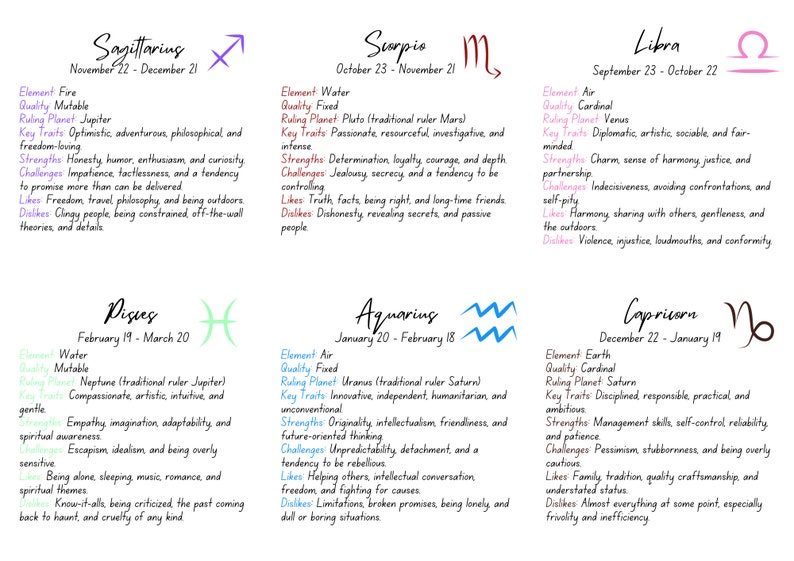 Sagittarius
November 22 - December 21
Element: Fire
Quality: Mutable
Ruling Planet: Jupiter
Key Traits: Optimistic, adventurous, philosophical, and
freedom-loving.
Strengths: Honesty, humor, enthusiasm, and curiosity.
Challenges: Impatience, tactlessness, and a tendency
to promise more than can be delivered.
Likes: Freedom, travel, philosophy, and being outdoors.
Dislikes: Clingy people, being constrained, off-the-wall
theories, and details.
Scorpio
October 23 - November 21
Element: Water
Quality: Fixed
Ruling Planet: Pluto (traditional ruler Mars)
Key Traits: Passionate, resourceful, investigative, and
intense.
Strengths: Determination, loyalty, courage, and depth.
Challenges: Jealousy, secrecy, and a tendency to be
controlling.
Likes: Truth, facts, being right, and long-time friends.
Dislikes: Dishonesty, revealing secrets, and passive
people.
Libra
September 23 - October 22
Element: Air
Quality: Cardinal
Ruling Planet: Venus
Key Traits: Diplomatic, artistic, sociable, and fair-
minded.
Strengths: Charm, sense of harmony, justice, and
partnership.
Challenges: Indecisiveness, avoiding confrontations, and
self-pity.
Likes: Harmony, sharing with others, gentleness, and
the outdoors.
Dislikes: Violence, injustice, loudmouths, and conformity.
Pisves
February 19 - March 20
Element: Water
Quality: Mutable
Ruling Planet: Neptune (traditional ruler Jupiter)
Key Traits: Compassionate, artistic, intuitive, and
gentle.
Strengths: Empathy, imagination, adaptability, and
spiritual awareness.
Challenges: Escapism, idealism, and being overly
sensitive.
Likes: Being alone, sleeping, music, romance, and
spiritual themes.
Dislikes: Know-it-alls, being criticized, the past coming
back to haunt, and cruelty of any kind.
Aquarius
January 20 - February 18
Element: Air
Quality: Fixed
Ruling Planet: Uranus (traditional ruler Saturn)
Key Traits: Innovative, independent, humanitarian, and
unconventional.
Strengths: Originality, intellectualism, friendliness, and
future-oriented thinking.
Challenges: Unpredictability, detachment, and a
tendency to be rebellious.
Likes: Helping others, intellectual conversation,
freedom, and fighting for causes.
Dislikes: Limitations, broken promises, being lonely, and
dull or boring situations.
Capricorn
December 22 - January 19
Element: Earth
Quality: Cardinal
Ruling Planet: Saturn
Key Traits: Disciplined, responsible, practical, and
ambitious.
Strengths: Management skills, self-control, reliability,
and patience.
Challenges: Pessimism, stubbornness, and being overly
cautious.
Likes: Family, tradition, quality craftsmanship, and
understated status.
Dislikes: Almost everything at some point, especially
frivolity and inefficiency.